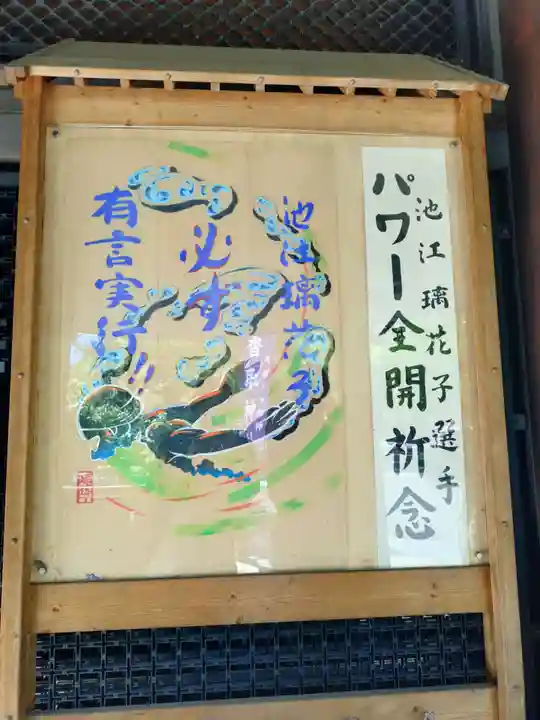 池江璃花子選手
パワー全開祈念
池江璃花子
必す
有言実行!!